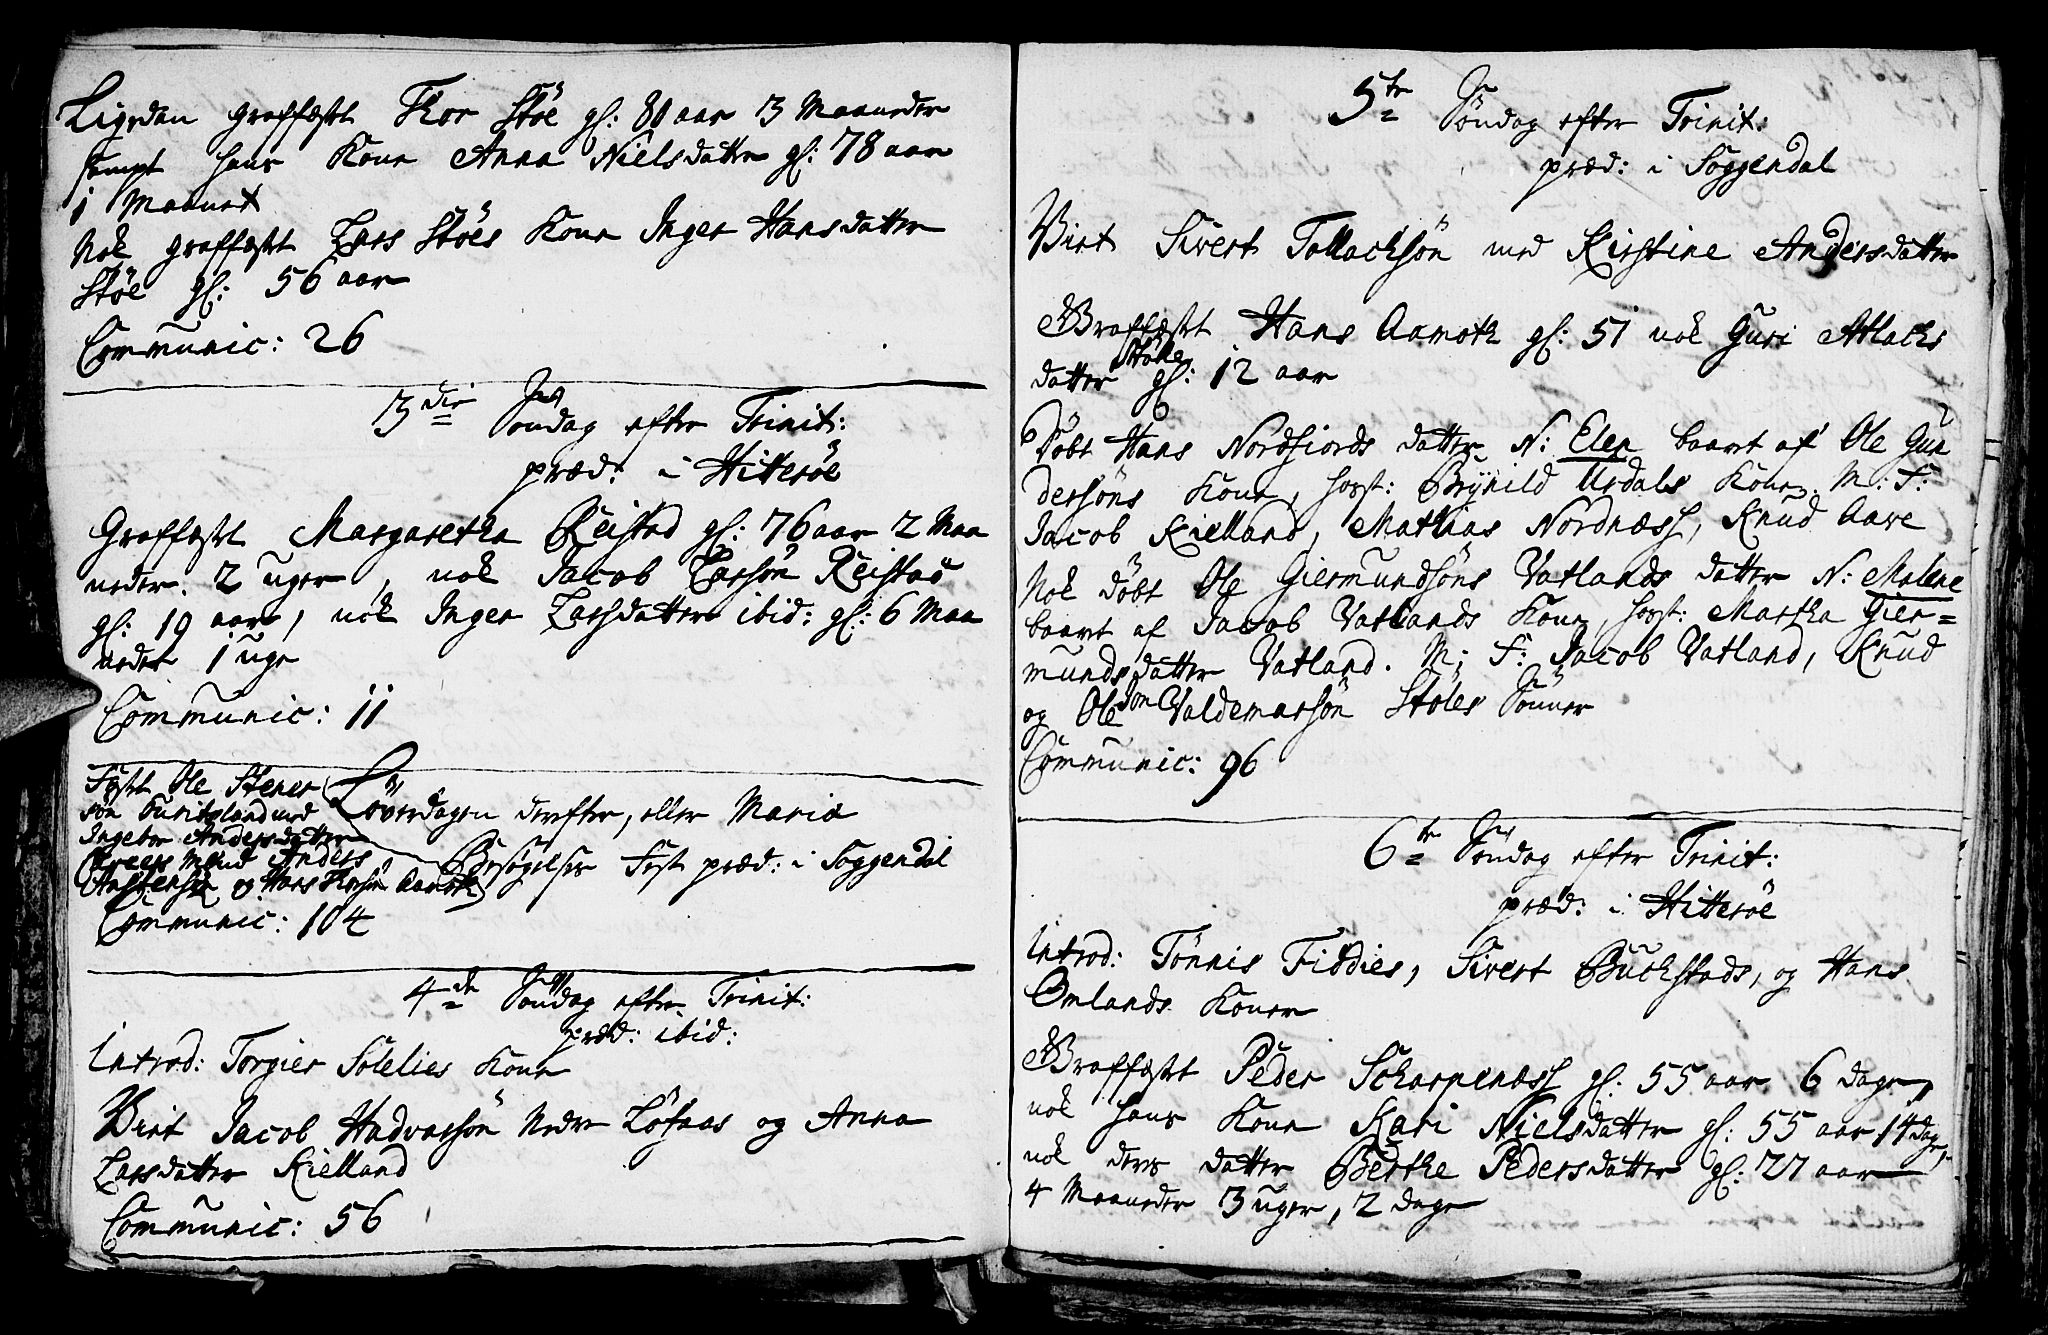 Ligedan graffæstet Thor Støe gl: 81 aar 3 Maaneder
sampt hans Kone Anna Nielsdatter gl: 78 aar
1 Maanet
Nok graffæstet Lars Støes Kone Inger Hansdatter
Støe gl: 56 aar
Communic: 26
3die Søndag efter Trinit:
præd: i Hitterøe
Graffæstet Margaretha Reistad gl: 76 aar 2 Maa
neder 2 uger, nok Jacob Larsøn Reistad
gl: 19 aar, nok Inger Larsdatter ibid: gl: 6 Maa
neder 1 uge
Communic: 11
Fæst Ole Stener
søn med
Ingebor Andersdatter
Anders
og Hans Aamoth
Løverdagen derefter, eller Mariæ
Besøgelses Fest præd: i Soggendal
Communic: 104
4de Søndag efter Trinit:
præd: ibid:
Introd: Torgier Solelies Kone
Virt Jacob Hadvarsøn Nedre Løfaas og Anna
Larsdatter Kielland
Communic: 56
5te Søndag efter Trinit:
præd: i Soggendal
Virt Sivert Tollachsøn med Kirstine Andersdatter
Graffæstet Hans Aamoth gl: 51 nok Guri Atlachs
datter Støle gl: 12 aar
Døbt Hans Nordfiords datter N: Elen baaret af Ole Gun
dersøns Kone, hoest: Brynild Urdals Kone. M: F:
Jacob Kielland, Mathias Nordnæss, Knud Aare
Nok døbt Ole Giermundsøns Vatlands datter N: Malene
baaret af Jacob Vatlands Kone, hoest: Martha Gier=
mundsdatter Vatland. M: F: Jacob Vatland, Knud
og Ole Valdemarsøn Støles Sønner
Communic: 96
6te Søndag efter Trinit:
præd: i Hitterøe
Introd: Tønnis Fiddies, Sivert Buchstads, og Hans
Omlands Koner
Graffæstet Peder Scharpenæss gl: 55 aar 6 dage,
nok hans Kone Kari Nielsdatter gl: 55 aar 14 dage,
nok deres datter Berthe Pedersdatter gl: 27 aar
4 Maaneder 3 uger, 2 dage